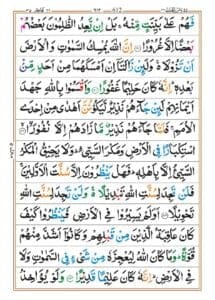 فَهُمْ عَلٰى بَيِّنَتٍ مِّنْهُ ۚ بَلْ اِنْ يَّعِدُ الظّٰلِمُوْنَ بَعْضُهُمْ
بَعْضًا اِلَّا غُرُوْرًا ۝ اِنَّ اللّٰهَ يُمْسِكُ السَّمٰوٰتِ وَ الْاَرْضَ
اَنْ تَزُوْلَا ۚ وَ لَئِنْ زَالَتَاۤ اِنْ اَمْسَكَهُمَا مِنْ اَحَدٍ مِّنْۢ
بَعْدِهٖ ؕ اِنَّهٗ كَانَ حَلِيْمًا غَفُوْرًا ۝ وَ اَقْسَمُوْا بِاللّٰهِ جَهْدَ
اَيْمَانِهِمْ لَئِنْ جَآءَهُمْ نَذِيْرٌ لَّيَكُوْنُنَّ اَهْدٰى مِنْ اِحْدَى
الْاُمَمِ ۚ فَلَمَّا جَآءَهُمْ نَذِيْرٌ مَّا زَادَهُمْ اِلَّا نُفُوْرًا ۝
اسْتِكْبَارًا فِي الْاَرْضِ وَ مَكْرَ السَّيِّئِ ؕ وَ لَا يَحِيْقُ الْمَكْرُ
السَّيِّئُ اِلَّا بِاَهْلِهٖ ؕ فَهَلْ يَنْظُرُوْنَ اِلَّا سُنَّتَ الْاَوَّلِيْنَ ۚ
فَلَنْ تَجِدَ لِسُنَّتِ اللّٰهِ تَبْدِيْلًا ۚ وَ لَنْ تَجِدَ لِسُنَّتِ اللّٰهِ
تَحْوِيْلًا ۝ اَوَ لَمْ يَسِيْرُوْا فِي الْاَرْضِ فَيَنْظُرُوْا كَيْفَ
كَانَ عَاقِبَةُ الَّذِيْنَ مِنْ قَبْلِهِمْ وَ كَانُوْۤا اَشَدَّ مِنْهُمْ
قُوَّةً ؕ وَ مَا كَانَ اللّٰهُ لِيُعْجِزَهٗ مِنْ شَيْءٍ فِي السَّمٰوٰتِ وَ لَا
فِي الْاَرْضِ ؕ اِنَّهٗ كَانَ عَلِيْمًا قَدِيْرًا ۝ وَ لَوْ يُؤَاخِذُ